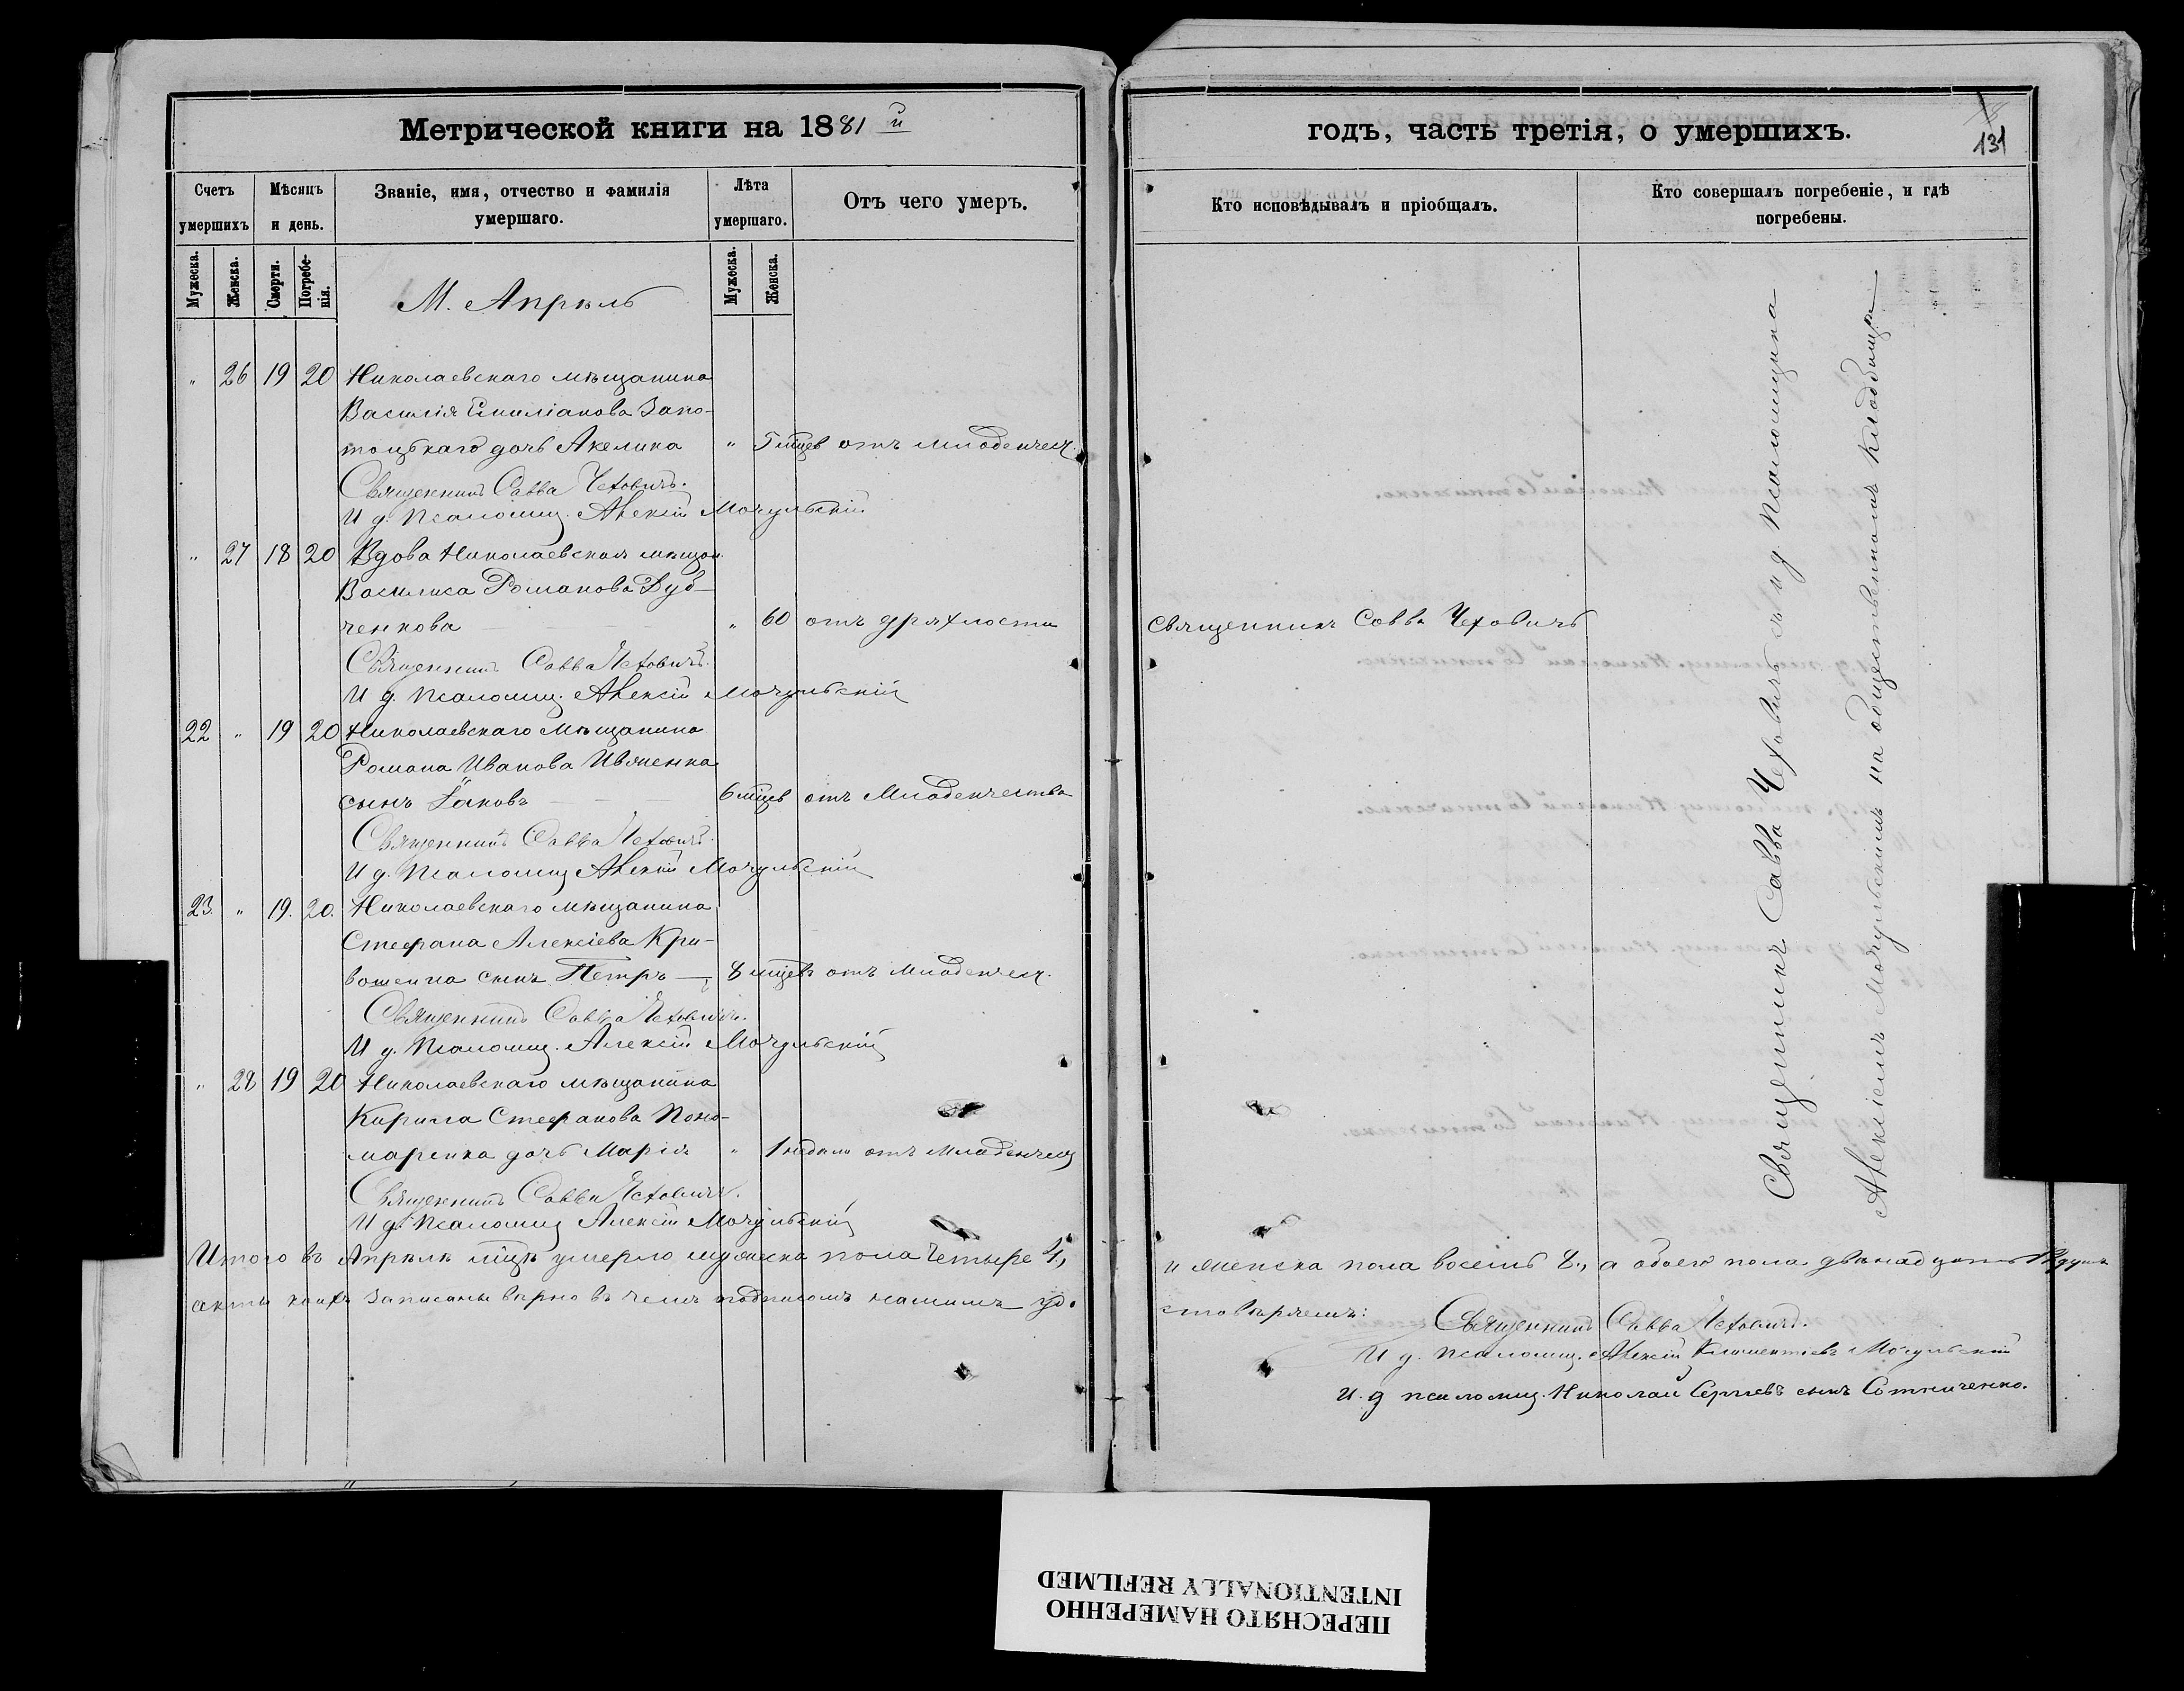 Метрической книги на 1881 й
Счетъ умершихъ
Мѣсяцъ и день.
Званіе, имя, отчество и фамилія умершаго.
Лѣта умершаго.
Отъ чего умеръ.
Мужеска.
Женска.
Смерти.
Погребе-
нія.
Мужеска.
Женска.
М. Апрѣль
" 26 19 20 Николаевскаго мѣщанина
Василія Емиліанова Запо-
тоцкаго дочь Акелина " 5 мцев отъ младенчес.
Священникъ Савва Чеховичъ.
И д. Псаломщ. Алексій Мочульскій
" 27 18 20 Вдова Николаевская мѣщан.
Василиса Романова Дуб-
ченкова " 60 отъ дряхлости
Священникъ Савва Чеховичъ.
И д. Псаломщ. Алексій Мочульскій
22 " 19 20 Николаевскаго мѣщанина
Романа Иванова
сынъ Іаковъ 6 мцев отъ Младенчества
Священникъ Савва Чеховичъ.
И д. Псаломщ Алексій Мочульскій
23. " 19. 20. Николаевскаго мѣщанина
Стефана Алексіева Кри-
вошеина сынъ Петръ — 8 мцевъ отъ младенчес.
Священникъ Савва Чеховичъ.
И д. Псаломщ. Алексій Мочульскій
" 28 19 20 Николаевскаго мѣщанина
Кирила Стефанова Поно-
маренка дочь Марія " 1 недѣли отъ младенчес
Священникъ Савва Чеховичъ.
И д. Псаломщ Алексій Мочульскій
Итого въ Апрѣлѣ мцѣ умерло мужеска пола четыре 4,
акты коихъ записаны вѣрно въ чемъ подписомъ нашимъ удо
годъ, часть третія, о умершихъ.
131
Кто исповѣдывалъ и пріобщалъ.
Кто совершалъ погребеніе, и гдѣ погребены.
священникъ Савва Чеховичъ
Священникъ Савва Чеховичъ съ и д. Псаломщика
Алексіемъ Мочульскимъ на общественномъ кладбищѣ
и женска пола восемь 8, а обоего пола двѣнадцать 12 душъ
стовѣряемъ:
Священникъ Савва Чеховичъ.
И д. псаломщ. Алексій Климентіевъ Мочульскій
И. д псаломщ. Николай Сергіевъ сынъ Сотниченко.
ПЕРЕСНЯТО НАМЕРЕННО
INTENTIONALLY REFILMED